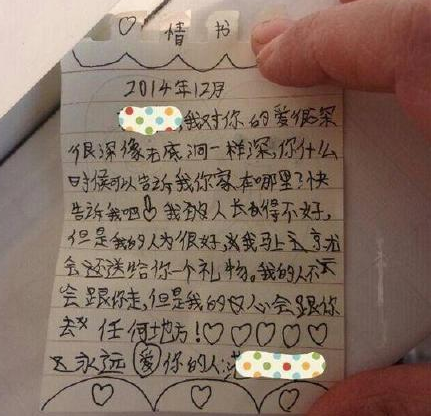 ♡ 情书
2014年12月
,我对你的爱很深
很深像无底洞一样深,你什么
时候可以告诉我你家在哪里?快
告诉我吧!我的人长得不好,
但是我的人为很好,我马上
会还送给你一个礼物。我的人不
会跟你走,但是我的心会跟你
去 任何地方!♡♡♡♡♡
永远爱你的人:
♡ ♡ ♡